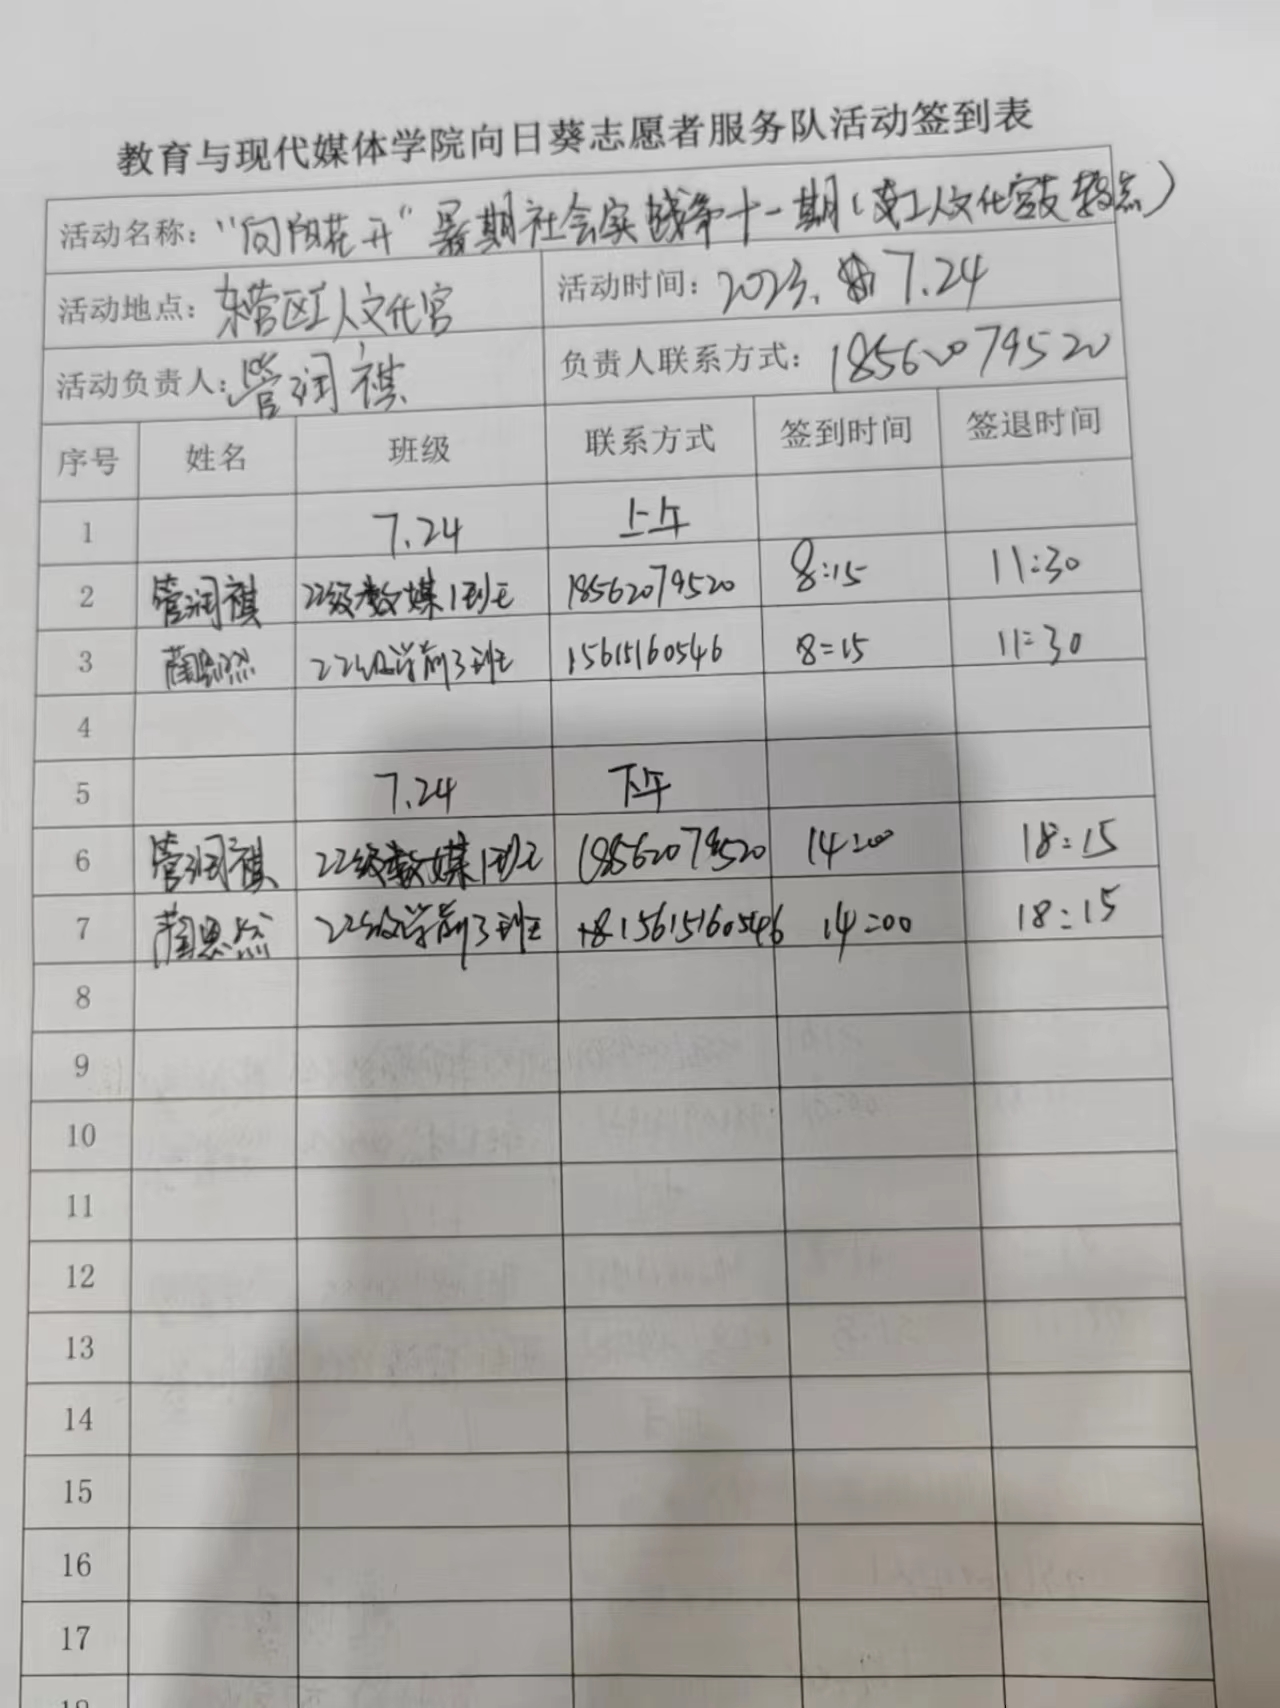 教育与现代媒体学院向日葵志愿者服务队活动签到表
活动名称："向阳花开"暑期社会实践第十一期（东工人文化宫支教点）
活动地点：东营区工人文化宫 活动时间：2023. 7.24
活动负责人：管润祺 负责人联系方式：18562079520
序号 姓名 班级 联系方式 签到时间 签退时间
1 7.24 上午
2 管润祺 22级数媒1班 18562079520 8:15 11:30
3 蔺思然 22级学前3班 15615160546 8:15 11:30
4
5 7.24 下午
6 管润祺 22级数媒1班 18562079520 14:00 18:15
7 蔺思然 22级学前3班 +8615615160546 14:00 18:15
8
9
10
11
12
13
14
15
16
17
18